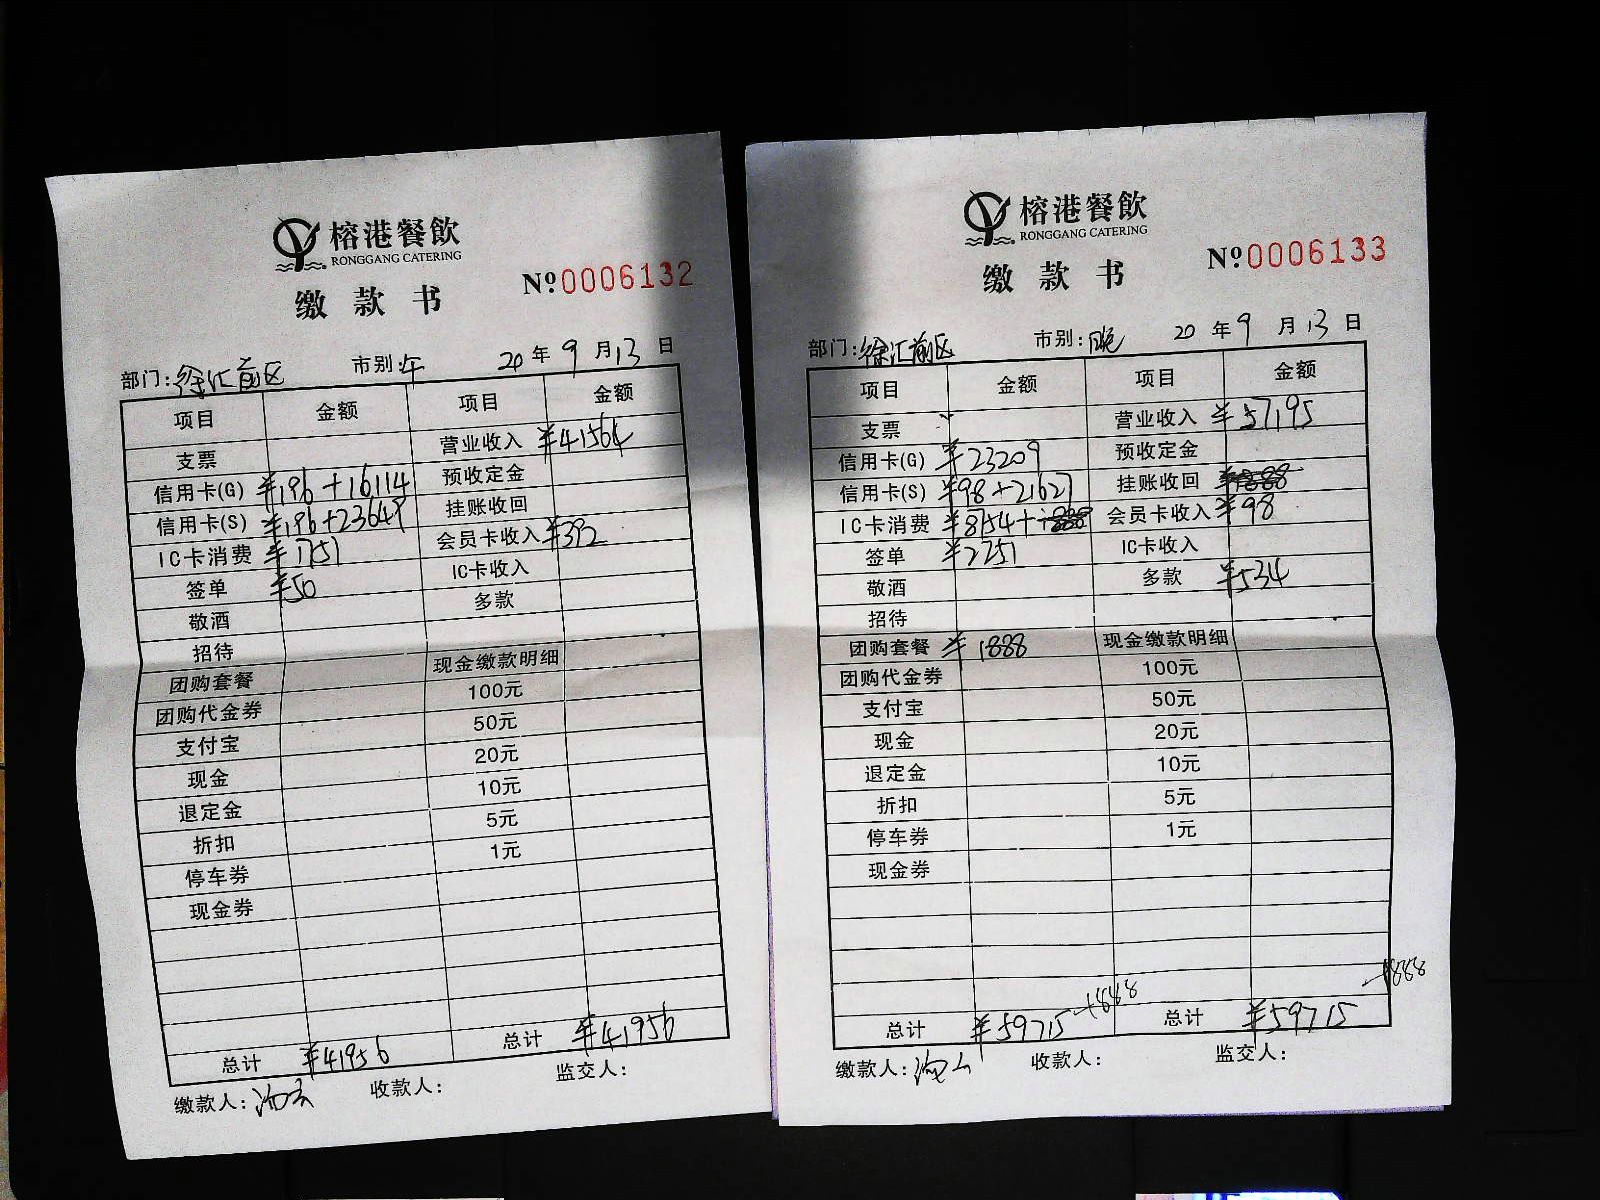 榕港餐飲
RONGGANG CATERING
缴款书
Nº0006132
部门:徐汇前区 市别:午 20年9月13日
项目 金额 项目 金额
支票 营业收入 ¥41564
信用卡(G) ¥196+16114 预收定金
信用卡(S) ¥196+23649 挂账收回
IC卡消费 ¥1751 会员卡收入 ¥392
签单 ¥50 IC卡收入
敬酒 多款
招待
团购套餐 现金缴款明细
团购代金券 100元
支付宝 50元
现金 20元
退定金 10元
折扣 5元
停车券 1元
现金券
总计 ¥41956 总计 ¥41956
缴款人: 收款人: 监交人:
榕港餐飲
RONGGANG CATERING
缴款书
Nº0006133
部门:徐汇前区 市别:晚 20年9月13日
项目 金额 项目 金额
支票 营业收入 ¥57195
信用卡(G) ¥23209 预收定金
信用卡(S) ¥98+21627 挂账收回
IC卡消费 ¥8154+ 会员卡收入 ¥98
签单 ¥2751 IC卡收入
敬酒 多款 ¥534
招待
团购套餐 ¥1888 现金缴款明细
团购代金券 100元
支付宝 50元
现金 20元
退定金 10元
折扣 5元
停车券 1元
现金券
总计 ¥59715 总计 ¥59715
缴款人: 收款人: 监交人: